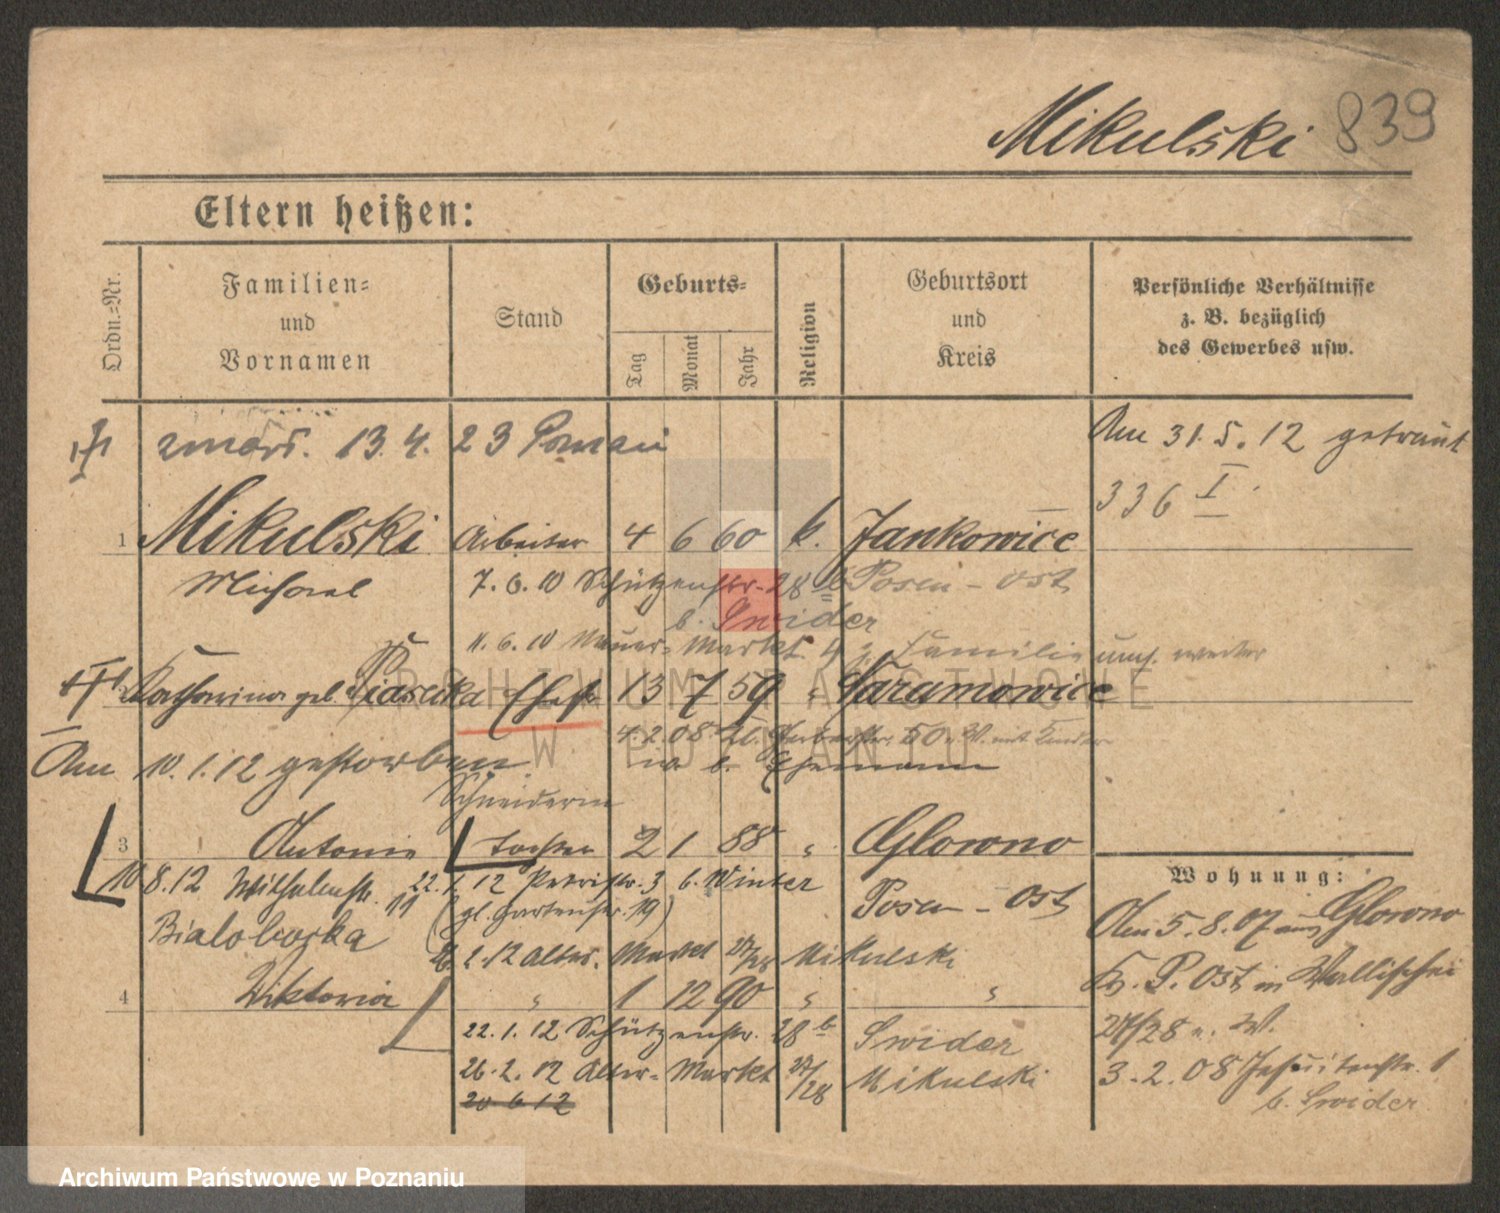 Mikulski 839
Eltern heißen:
Ordn.=Nr.
Familien=
und
Vornamen
Stand
Geburts=
Tag
Monat
Jahr
Religion
Geburtsort
und
Kreis
Persönliche Verhältnisse
z. B. bezüglich
des Gewerbes usw.
zmarł. 13.4.23 Poznań
Am 31.5.12 getraut
336 I
1 Mikulski Arbeiter 4 6 60 k. Jankowice
Michael 7.6.10 Schützenstr. 28 b Posen-Ost
b. Swider
11.6.10 Neuer Markt 4 z. Familie umf. weiter
2 Katharina geb. Piasecka Ehefr 13 7 59 " Garamowice
4.2.08 50 W. mit Kinder
Am 10.1.12 gestorben b. Ehemann
Schneiderin
3 Antonie Tochter 2 1 88 " Glowno
10 8.12 Wilhelmstr. 11 22.1.12 Petristr. 3 b. Winter
(gl. Gartenstr. 19) Posen-Ost
Bialoborka
26.2.12 Alter Markt 27/28 Mikulski
4 Viktoria " 1 12 90 " "
22.1.12 Schützenstr. 28 b Swider
26.2.12 Alter-Markt 27/28 Mikulski
20 6 12
Wohnung:
Am 5.8.07 aus Glowno
Kr. P. Ost in Wallischei
27/28 n. W.
3.2.08 Jesuitenstr. 1
b. Swider
ARCHIWUM PAŃSTWOWE
W POZNANIU
Archiwum Państwowe w Poznaniu